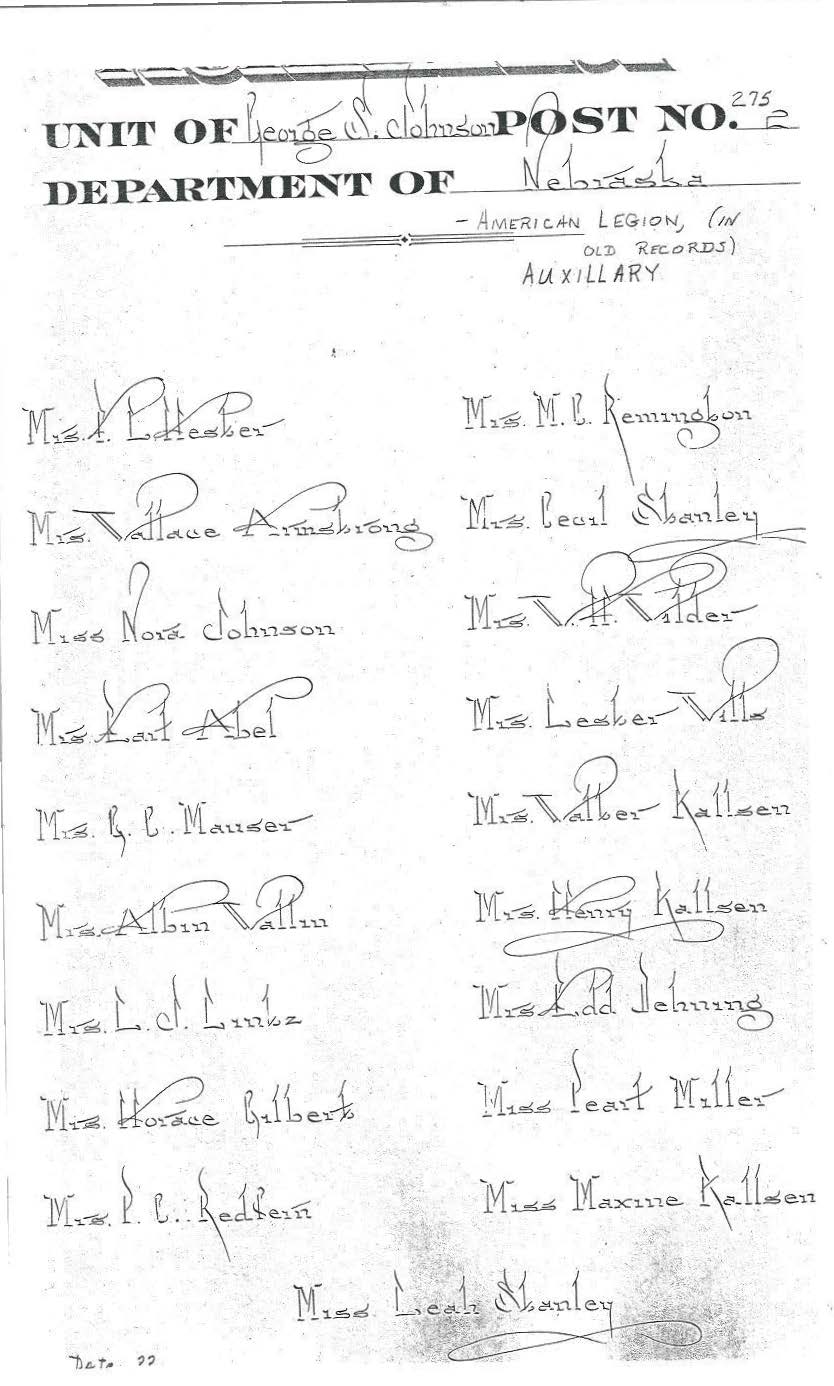 UNIT OF George S. Johnson POST NO. 275 2
DEPARTMENT OF Nebraska
- AMERICAN LEGION, (IN
OLD RECORDS)
AUXILLARY
Mrs. L. Hester
Mrs. Wallace Armstrong
Miss Nora Johnson
Mrs. Earl Abel
Mrs. G. C. Mauser
Mrs. Albin Wallin
Mrs. L. J. Lintz
Mrs. Horace Gilbert
Mrs. P. C. Redfern
Mrs. M. C. Remington
Mrs. Cecil Stanley
Mrs. W. H. Wilder
Mrs. Lester Wills
Mrs. Walter Kallsen
Mrs. Henry Kallsen
Mrs. Edd Jehning
Miss Pearl Miller
Miss Maxine Kallsen
Miss Leah Stanley
Date ??